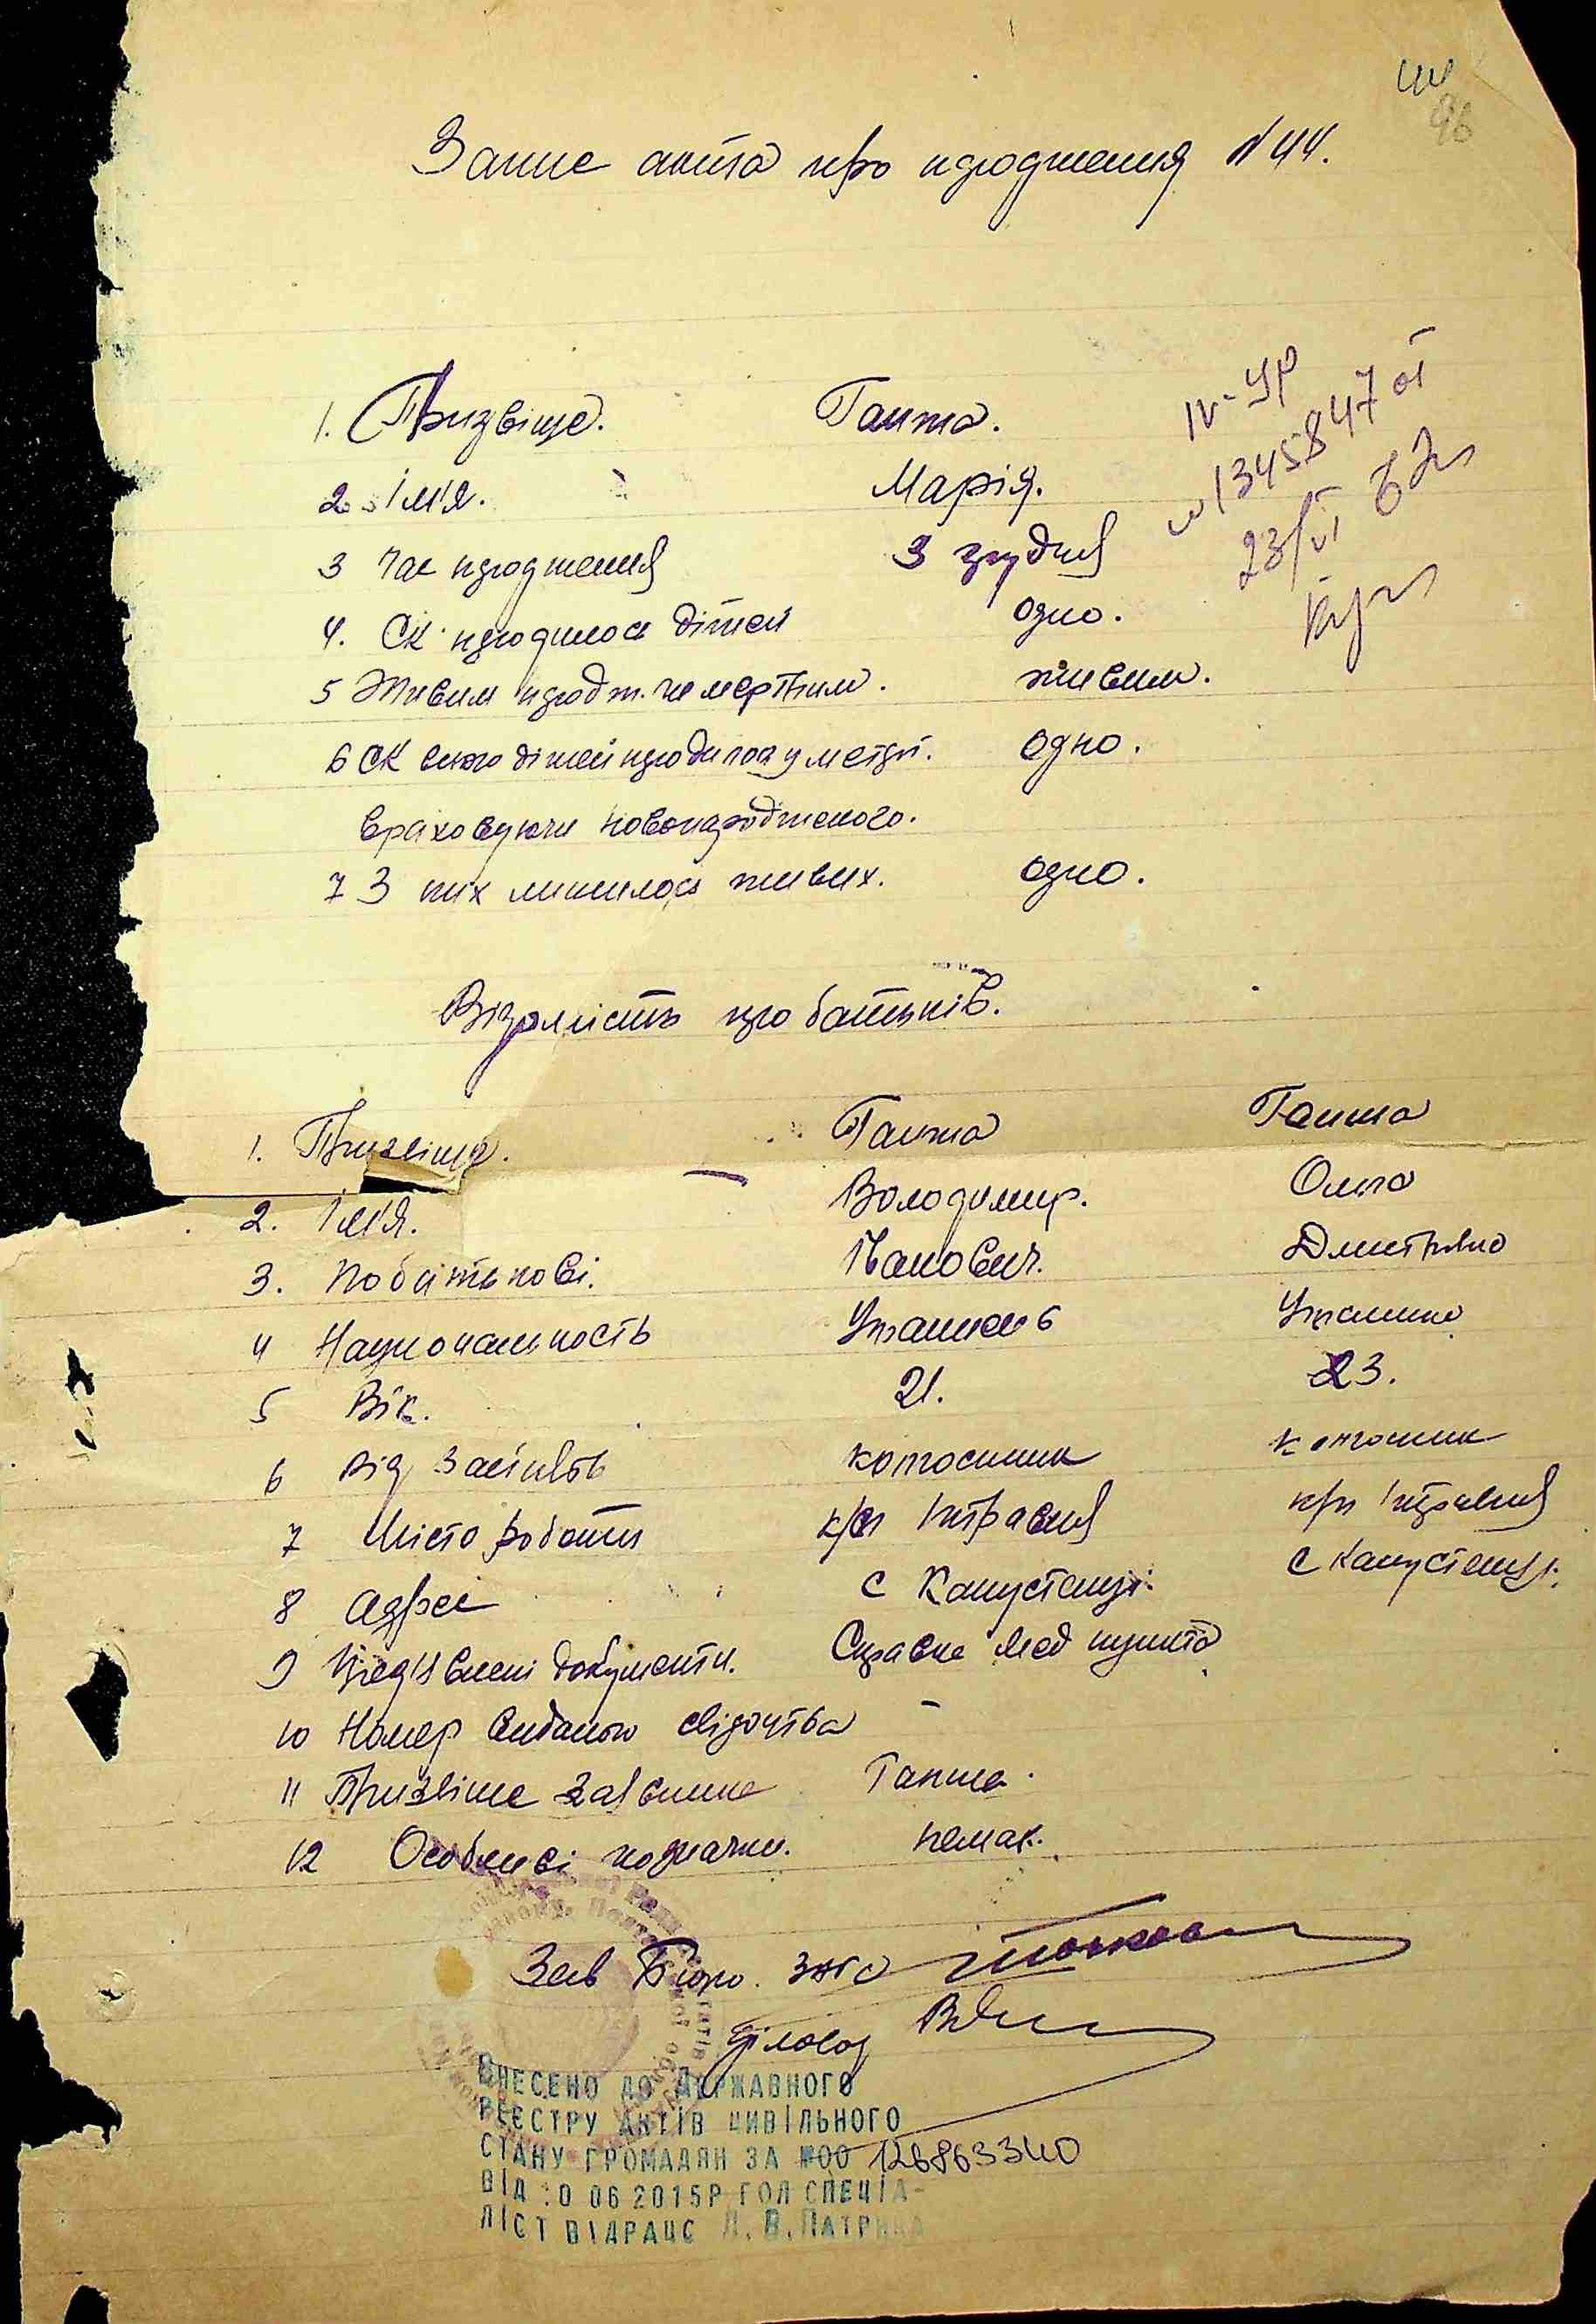 96
Запис акта про народження N 44.
1. Призвіще. Ганжа.
2. Імʼя. Марія.
3 Час народження 3 грудня
4. Ск. народилося дітей одно.
5 Живим народж. чи мертвим. живим.
6 Ск всього дітей народилося у матері. одно.
враховуючи новонародженого.
7 З них лишилося живих. одно.
IV-УР
N 1345847 от
23/VI
Відомість про батьків.
1. Призвіще. Ганжа Ганжа
2. Імʼя. Володимир. Ольга
3. Побатькові. Іванович. Дмитрівна
4 Национальность Українець Українка
5 Вік. 21. 23.
6 Від занять колгоспник колгоспник
7 Місто роботи к/г 1 травня к/г 1 травня
8 Адрес с Капустенці. с Капустенці.
9 Предʼявлені документи. Справка мед пункта
10 Номер виданого свідоцтва –
11 Призвіще заявника Ганжа.
12 Особливі позначки. немає.
Зав Бюро. ЗАГС
Діловод
ВНЕСЕНО ДО ДЕРЖАВНОГО
РЕЄСТРУ АКТІВ ЦИВІЛЬНОГО
СТАНУ ГРОМАДЯН ЗА №00 126863340
ВІД 10 06 2015Р ГОЛ СПЕЦІА-
ЛІСТ ВІДРАЦС Л. В. ПАТРИКА